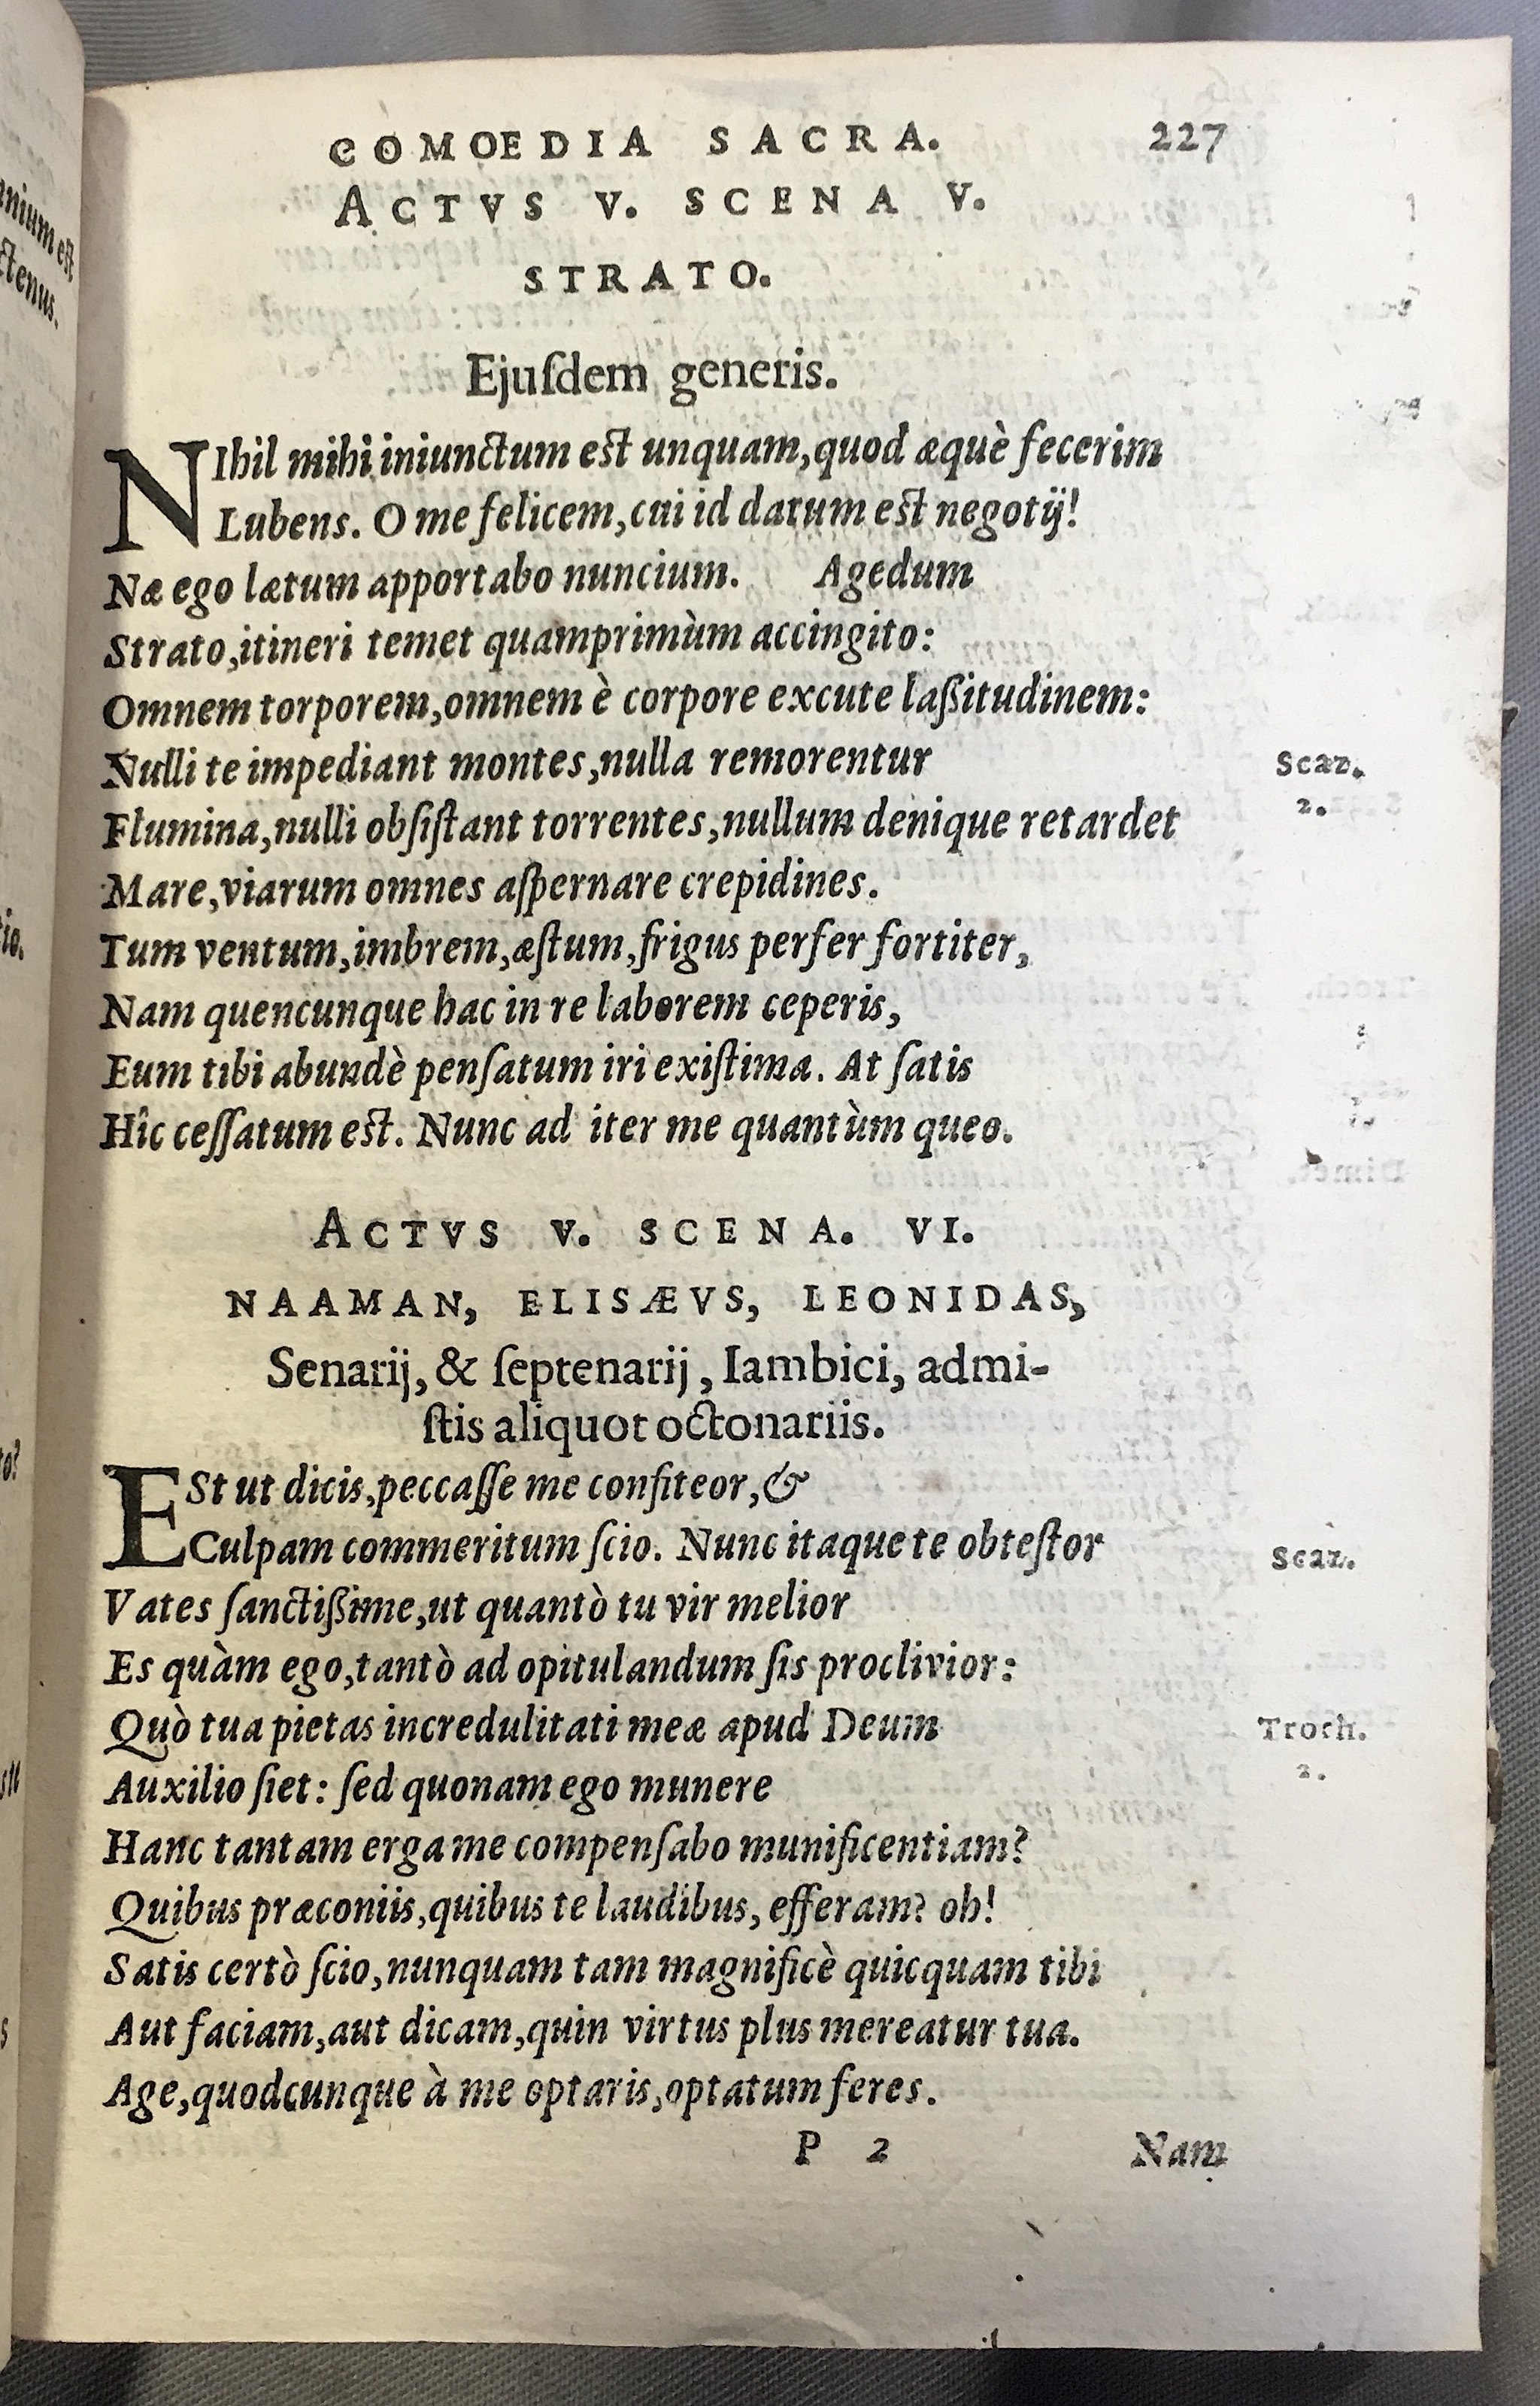 COMOEDIA SACRA. 227
ACTVS V. SCENA V.
STRATO.
Ejuſdem generis.
NIhil mihi iniunctum est unquam, quod æquè fecerim
Lubens. O me felicem, cui id datum est negotij!
Næ ego lætum apportabo nuncium. Agedum
Strato, itineri temet quamprimùm accingito:
Omnem torporem, omnem è corpore excute laßitudinem:
Nulli te impediant montes, nulla remorentur Scaz.
Flumina, nulli obſiſtant torrentes, nullum denique retardet 2.
Mare, viarum omnes aſpernare crepidines.
Tum ventum, imbrem, æſtum, frigus perfer fortiter,
Nam quencunque hac in re laborem ceperis,
Eum tibi abundè penſatum iri exiſtima. At ſatis
Hîc ceſſatum est. Nunc ad iter me quantùm queo.
ACTVS V. SCENA. VI.
NAAMAN, ELISÆVS, LEONIDAS,
Senarij, & ſeptenarij, Iambici, admi-
ſtis aliquot octonariis.
ESt ut dicis, peccaſſe me confiteor, &
Culpam commeritum ſcio. Nunc itaque te obteſtor Scaz.
Vates ſanctißime, ut quantò tu vir melior
Es quàm ego, tantò ad opitulandum ſis proclivior:
Quò tua pietas incredulitati meæ apud Deum Troch.
Auxilio ſiet: ſed quonam ego munere 2.
Hanc tantam erga me compenſabo munificentiam?
Quibus præconiis, quibus te laudibus, efferam? oh!
Satis certò ſcio, nunquam tam magnificè quicquam tibi
Aut faciam, aut dicam, quin virtus plus mereatur tua.
Age, quodcunque à me optaris, optatum feres.
P 2 Nam